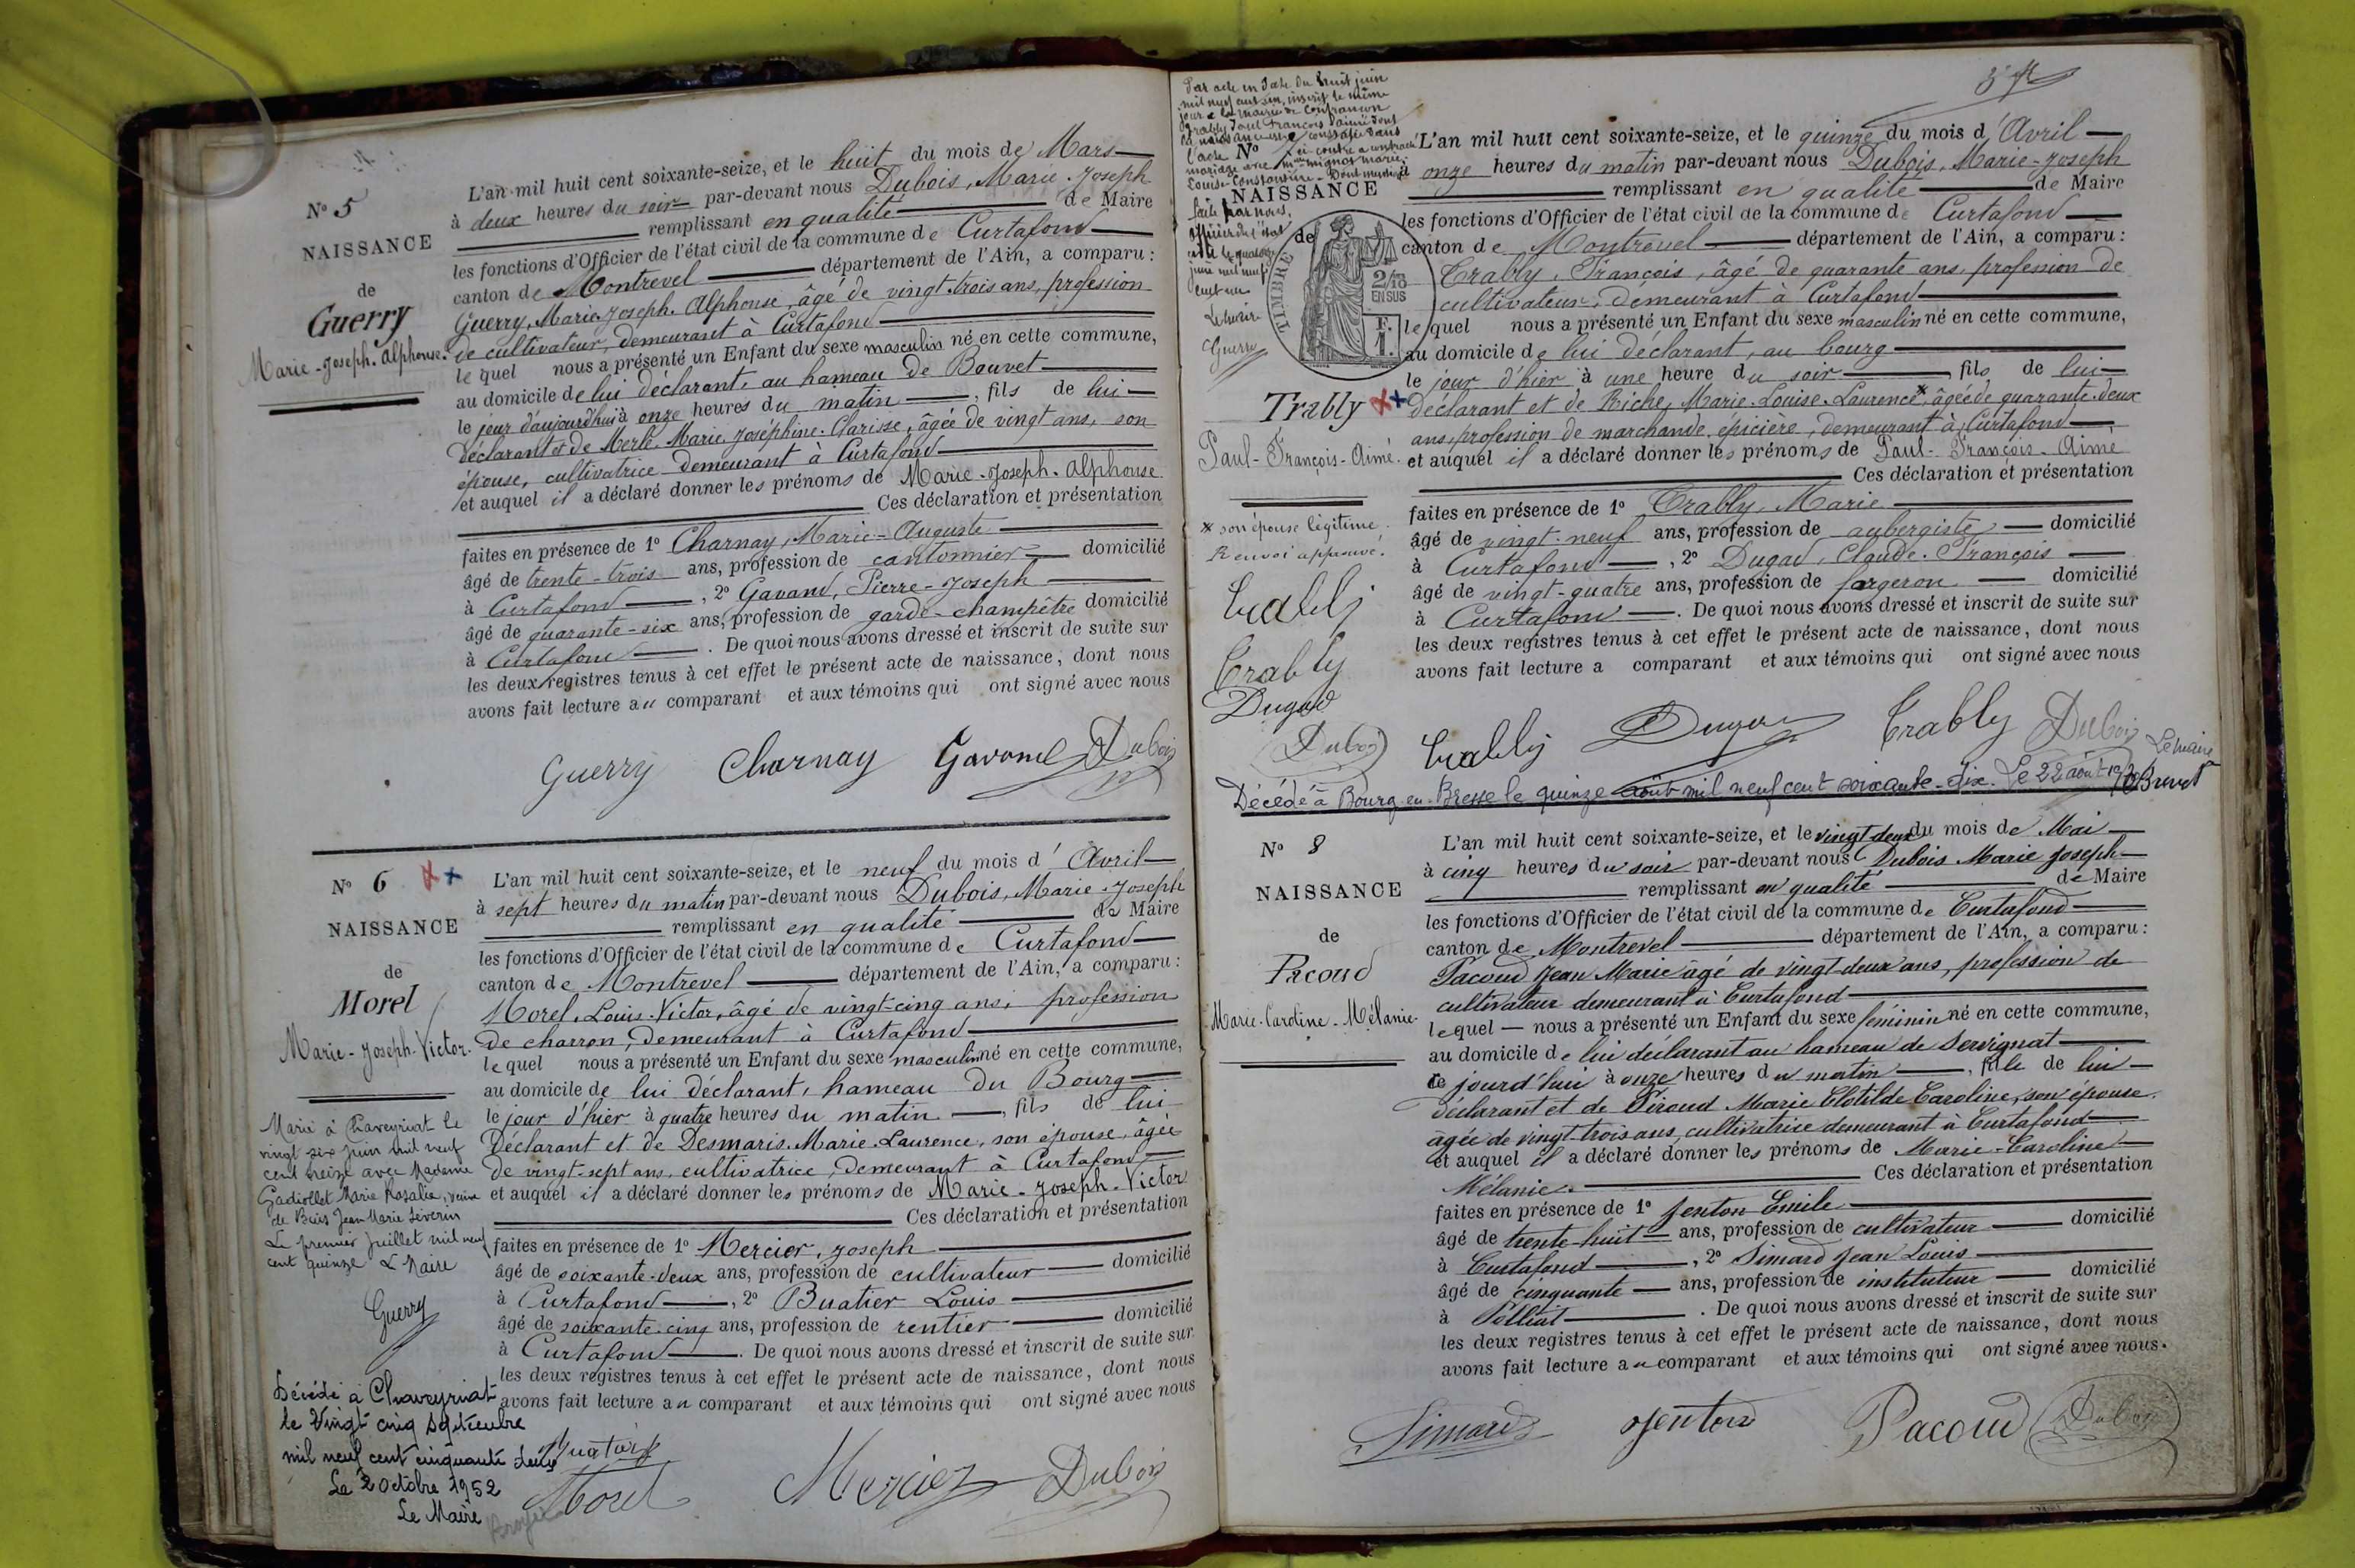 N° 5
NAISSANCE
de
Guerry
Marie-Joseph-Alphonse.
L'an mil huit cent soixante-seize, et le huit du mois de Mars
à deux heures du soir par-devant nous Dubois, Marie-Joseph
remplissant en qualité de Maire
les fonctions d'Officier de l'état civil de la commune de Curtafond
canton de Montrevel département de l'Ain, a comparu :
Guerry, Marie-Joseph-Alphonse, âgé de vingt-trois ans, profession
de cultivateur, demeurant à Curtafond
lequel nous a présenté un Enfant du sexe masculin né en cette commune,
au domicile de lui déclarant, au hameau de Bouvet
le jour d'aujourd'hui à onze heures du matin, fils de lui
déclarant et de Merle, Marie-Joséphine-Clarisse, âgée de vingt ans, son
épouse, cultivatrice demeurant à Curtafond
et auquel il a déclaré donner les prénoms de Marie-Joseph-Alphonse
Ces déclaration et présentation
faites en présence de 1° Charnay, Marie-Auguste
âgé de trente-trois ans, profession de cantonnier domicilié
à Curtafond, 2° Gavand, Pierre-Joseph
âgé de quarante-six ans, profession de garde-champêtre domicilié
à Curtafond. De quoi nous avons dressé et inscrit de suite sur
les deux registres tenus à cet effet le présent acte de naissance, dont nous
avons fait lecture au comparant et aux témoins qui ont signé avec nous
Guerry Charnay Gavand Dubois
N° 6
NAISSANCE
de
Morel
Marie-Joseph-Victor.
Marié à Chaveyriat le
vingt six juin mil neuf
cent treize avec Madame
Gadiollet Marie Rosalie, veuve
de Buis Jean Marie Séverin
Le premier Juillet mil neuf
cent quinze Le Maire
Guerry
Décédé à Chaveyriat
le Vingt cinq Septembre
mil neuf cent cinquante deux
Le 2 Octobre 1952
Le Maire
L'an mil huit cent soixante-seize, et le neuf du mois d'Avril
à sept heures du matin par-devant nous Dubois, Marie-Joseph
remplissant en qualité de Maire
les fonctions d'Officier de l'état civil de la commune de Curtafond
canton de Montrevel département de l'Ain, a comparu :
Morel, Louis-Victor, âgé de vingt-cinq ans, profession
de charron, demeurant à Curtafond
lequel nous a présenté un Enfant du sexe masculin né en cette commune,
au domicile de lui déclarant, hameau du Bourg
le jour d'hier à quatre heures du matin, fils de lui
Déclarant et de Desmaris, Marie-Laurence, son épouse, âgée
de vingt-sept ans, cultivatrice, demeurant à Curtafond
et auquel il a déclaré donner les prénoms de Marie-Joseph-Victor
Ces déclaration et présentation
faites en présence de 1° Mercier, Joseph
âgé de soixante-deux ans, profession de cultivateur domicilié
à Curtafond, 2° Buatier Louis
âgé de soixante-cinq ans, profession de rentier domicilié
à Curtafond. De quoi nous avons dressé et inscrit de suite sur
les deux registres tenus à cet effet le présent acte de naissance, dont nous
avons fait lecture au comparant et aux témoins qui ont signé avec nous
Morel Mercier Dubois
Par acte en date du huit juin
mil neuf cent un, inscrit le même
jour à la mairie de Confrançon
Trably Paul François Aimé dont
la naissance est constatée dans
l'acte N° 7 ci-contre a contracté
mariage avec Mignot Marie
Louise Constantine. Dont mention
NAISSANCE
faite par nous,
officier de l'état
civil le quatorze
juin mil neuf
cent un
Le Maire
Guerry
de
TIMBRE
2/10
EN SUS
F.
1.
Trably
Paul-François-Aimé.
* son épouse légitime.
Renvoi approuvé.
Trably
Trably
Dugad
Dubois
L'an mil huit cent soixante-seize, et le quinze du mois d'Avril
à onze heures du matin par-devant nous Dubois, Marie-Joseph
remplissant en qualité de Maire
les fonctions d'Officier de l'état civil de la commune de Curtafond
canton de Montrevel département de l'Ain, a comparu :
Trably, François, âgé de quarante ans, profession de
cultivateur, demeurant à Curtafond
lequel nous a présenté un Enfant du sexe masculin né en cette commune,
au domicile de lui déclarant, au bourg
le jour d'hier à une heure du soir, fils de lui
déclarant et de Riche, Marie-Louise-Laurence*, âgée de quarante-deux
ans, profession de marchande, épicière, demeurant à Curtafond
et auquel il a déclaré donner les prénoms de Paul-François-Aimé
Ces déclaration et présentation
faites en présence de 1° Trably, Marie
âgé de vingt-neuf ans, profession de aubergiste domicilié
à Curtafond, 2° Dugad, Claude-François
âgé de vingt-quatre ans, profession de forgeron domicilié
à Curtafond. De quoi nous avons dressé et inscrit de suite sur
les deux registres tenus à cet effet le présent acte de naissance, dont nous
avons fait lecture a comparant et aux témoins qui ont signé avec nous
Trably Dugad Trably Dubois
Décédé à Bourg-en-Bresse le quinze août mil neuf cent soixante-dix. Le 22 août 1970 Le Maire
N° 8
NAISSANCE
de
Pacoud
Marie-Caroline-Mélanie.
L'an mil huit cent soixante-seize, et le vingt deux du mois de Mai
à cinq heures du soir par-devant nous Dubois Marie Joseph
remplissant en qualité de Maire
les fonctions d'Officier de l'état civil de la commune de Curtafond
canton de Montrevel département de l'Ain, a comparu :
Pacoud Jean Marie âgé de vingt-deux ans, profession de
cultivateur demeurant à Curtafond
lequel nous a présenté un Enfant du sexe féminin né en cette commune,
au domicile de lui déclarant au hameau de Servignat
ce jourd'hui à onze heures du matin, fille de lui
déclarant et de Piroud Marie Clotilde Caroline, son épouse,
âgée de vingt-trois ans, cultivatrice demeurant à Curtafond
et auquel il a déclaré donner les prénoms de Marie-Caroline
Mélanie. Ces déclaration et présentation
faites en présence de 1° Jenton Emile
âgé de trente-huit ans, profession de cultivateur domicilié
à Curtafond, 2° Simard Jean Louis
âgé de cinquante ans, profession de instituteur domicilié
à Polliat. De quoi nous avons dressé et inscrit de suite sur
les deux registres tenus à cet effet le présent acte de naissance, dont nous
avons fait lecture au comparant et aux témoins qui ont signé avec nous.
Simard Jenton Pacoud Dubois